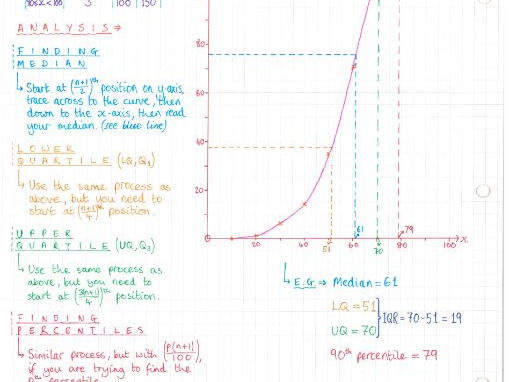 90≤x<100 3 100 150
ANALYSIS ⇒
FINDING
MEDIAN
↳ Start at ((n+1)/2)th position on y-axis,
trace across to the curve, then
down to the x-axis, then read
your median. (see blue line)
LOWER
QUARTILE (LQ, Q₁)
↳ Use the same process as
above, but you need to
start at ((n+1)/4)th position.
UPPER
QUARTILE (UQ, Q₃)
↳ Use the same process as
above, but you need to
start at (3(n+1)/4)th position.
FINDING
PERCENTILES
↳ Similar process, but with (P(n+1)/100),
if you are trying to find the
Pth percentile.
80
60
40
20
0
0 20 40 51 61 70 79 80 100 x
↳ E.G. ⇒ Median = 61
LQ = 51
UQ = 70
IQR = 70-51 = 19
90th percentile = 79